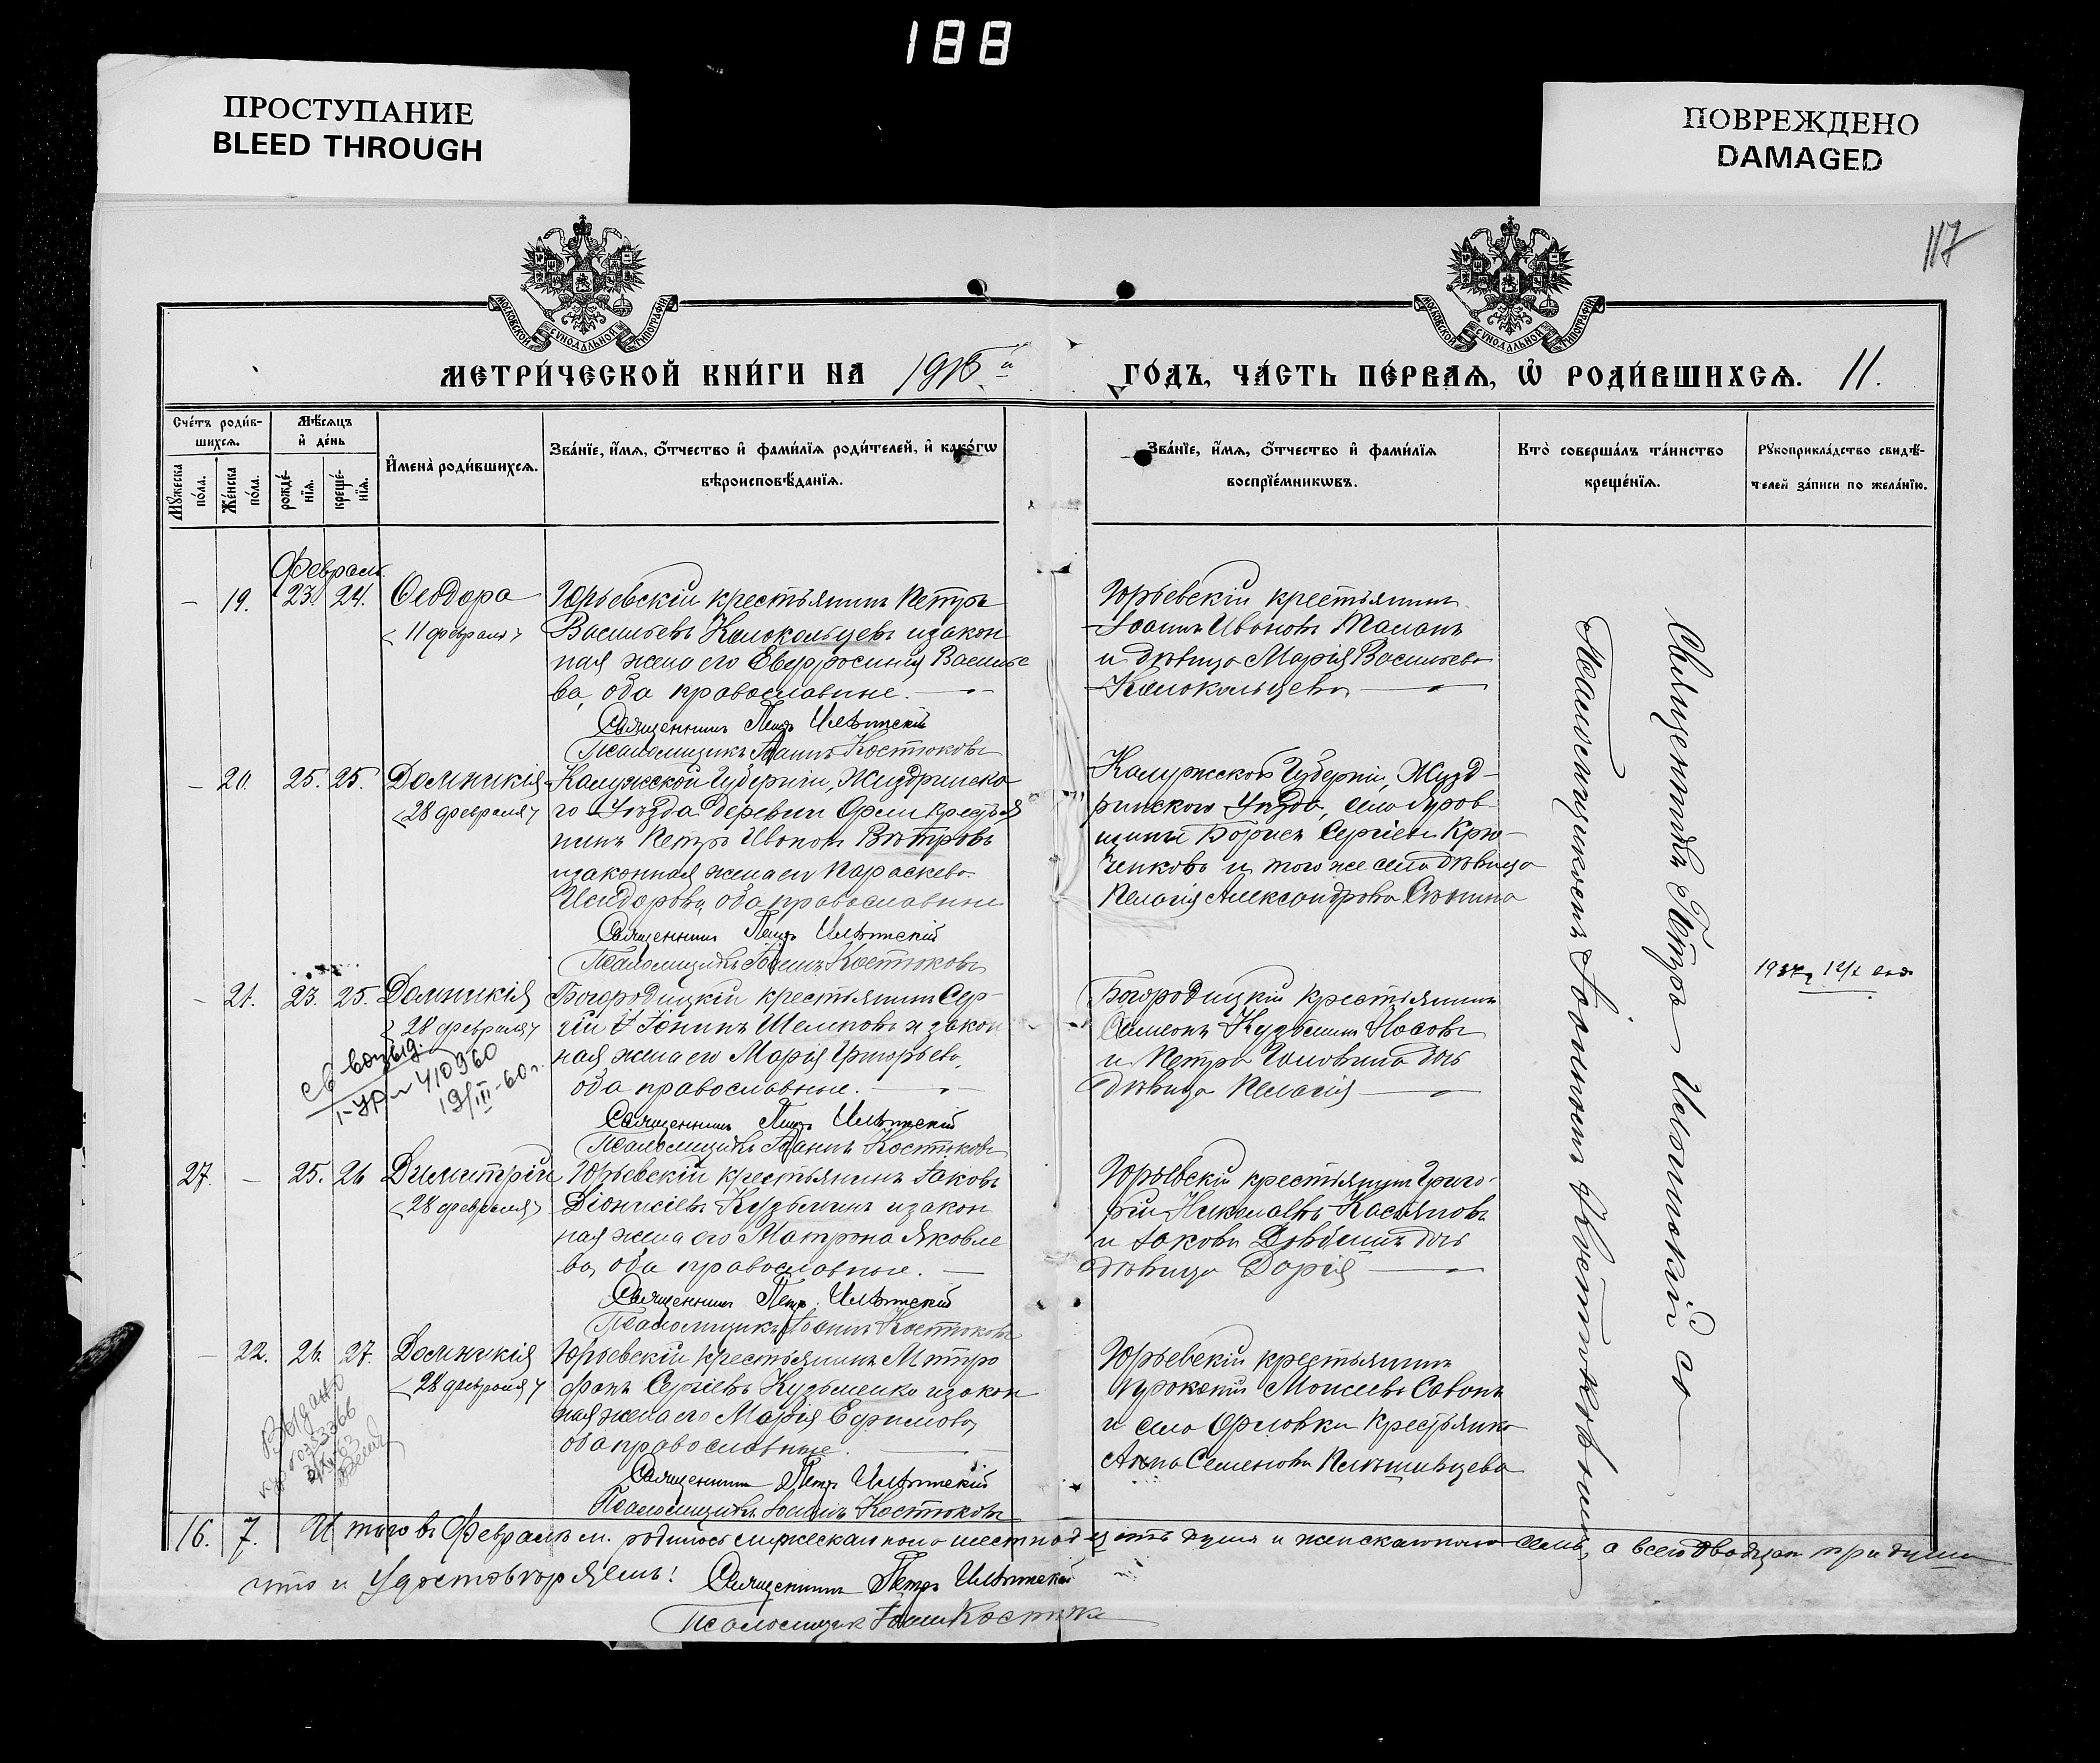 188
ПРОСТУПАНИЕ
BLEED THROUGH
ПОВРЕЖДЕНО
DAMAGED
117
МОСКОВСКОЙ СУНОДАЛЬНОЙ ТИПОГРАФІИ
МОСКОВСКОЙ СУНОДАЛЬНОЙ ТИПОГРАФІИ
МЕТРИ́ЧЕСКОЙ КНИ́ГИ НА 1916 й ГО́ДЪ, ЧА́СТЬ ПЕ́РВАѦ, Ѡ҆ РОДИ́ВШИХСѦ. 11.
Сче́тъ роди́в-
шихсѧ.
Мѣ́сѧцъ
и҆ де́нь
Мꙋ́жеска
по́ла.
Же́нска
по́ла.
рожде́-
нїѧ.
креще́-
нїѧ.
И҆мена̀ роди́вшихсѧ.
Зва́нїе, и҆́мѧ, ѻ҆́тчество и҆ фами́лїѧ роди́телей, и҆ како́гѡ
вѣроисповѣ́данїѧ.
Зва́нїе, и҆́мѧ, ѻ҆́тчество и҆ фами́лїѧ
воспрїе́мникѡвъ.
Кто̀ соверша́лъ та́инство
креще́нїѧ.
Рꙋкоприкла́дство свидѣ́-
телей за́писи по жела́нїю.
Февраль
— 19. 23. 24. Ѳеодора
11 февраля
Юрьевскій крестьянинъ Петръ
Васильевъ Колокольцевъ и закон
ная жена его Евфросинія Василье
ва, оба православные.
Священникъ Петръ
Псаломщикъ Іоаннъ Костюковъ
Юрьевскій крестьянинъ
Іоаннъ Ивановъ
и дѣвица Марія Васильева
Колокольцева
— 20. 25. 25. Домникія
28 февраля
Калужской Губерніи, Жиздринска-
го Уѣзда деревни крестья
нинъ Петръ Ивановъ Вѣтровъ
и законная жена его Параскева
Исидорова, оба православные
Священникъ Петръ
Псаломщикъ Іоаннъ Костюковъ
Калужской Губерніи, Жизд-
ринскаго Уѣзда, села
Борисъ Сергіевъ Крю-
ченковъ и того же села дѣвица
Пелагія Александрова
1937 г. 12/X
— 21. 23. 25. Домникія
28 февраля
Богородицкій крестьянинъ Сер-
гій и закон
ная жена его Марія Григорьева,
оба православные.
Священникъ Петръ
Псаломщикъ Іоаннъ Костюковъ
Богородицкій крестьянинъ
Симеонъ Кузьминъ Носовъ
и Петра дочь
дѣвица Пелагія
св
410960
19/III-60 г.
27. — 25. 26 Димитрій
28 февраля
Юрьевскій крестьянинъ Іаковъ
Діонисіевъ Кузьминъ и закон
ная жена его Матрона Яковле
ва, оба православные.
Священникъ Петръ
Псаломщикъ Іоаннъ Костюковъ
Юрьевскій крестьянинъ Григо-
рій Николаевъ Касьяновъ
и Іакова дочь
дѣвица Дарія
— 22. 26. 27. Домникія
28 февраля
Юрьевскій крестьянинъ Митро
фанъ Сергіевъ Кузьменко и закон
ная жена его Марія Ефимова,
оба православные.
Священникъ Петръ
Псаломщикъ Іоаннъ Костюковъ
Юрьевскій крестьянинъ
Моисеевъ
и села Орловки крестьянка
Анна Семенова
Выдано
Священникъ Петръ съ
Псаломщикомъ Іоанномъ Костюковымъ
16. 7. Итого въ Февралѣ м. родилось мужескаго пола шестнадцать душъ и женскаго пола семь, а всего двадцать три души
что и удостовѣряемъ! Священникъ Петръ
Псаломщикъ Іоаннъ Костюковъ